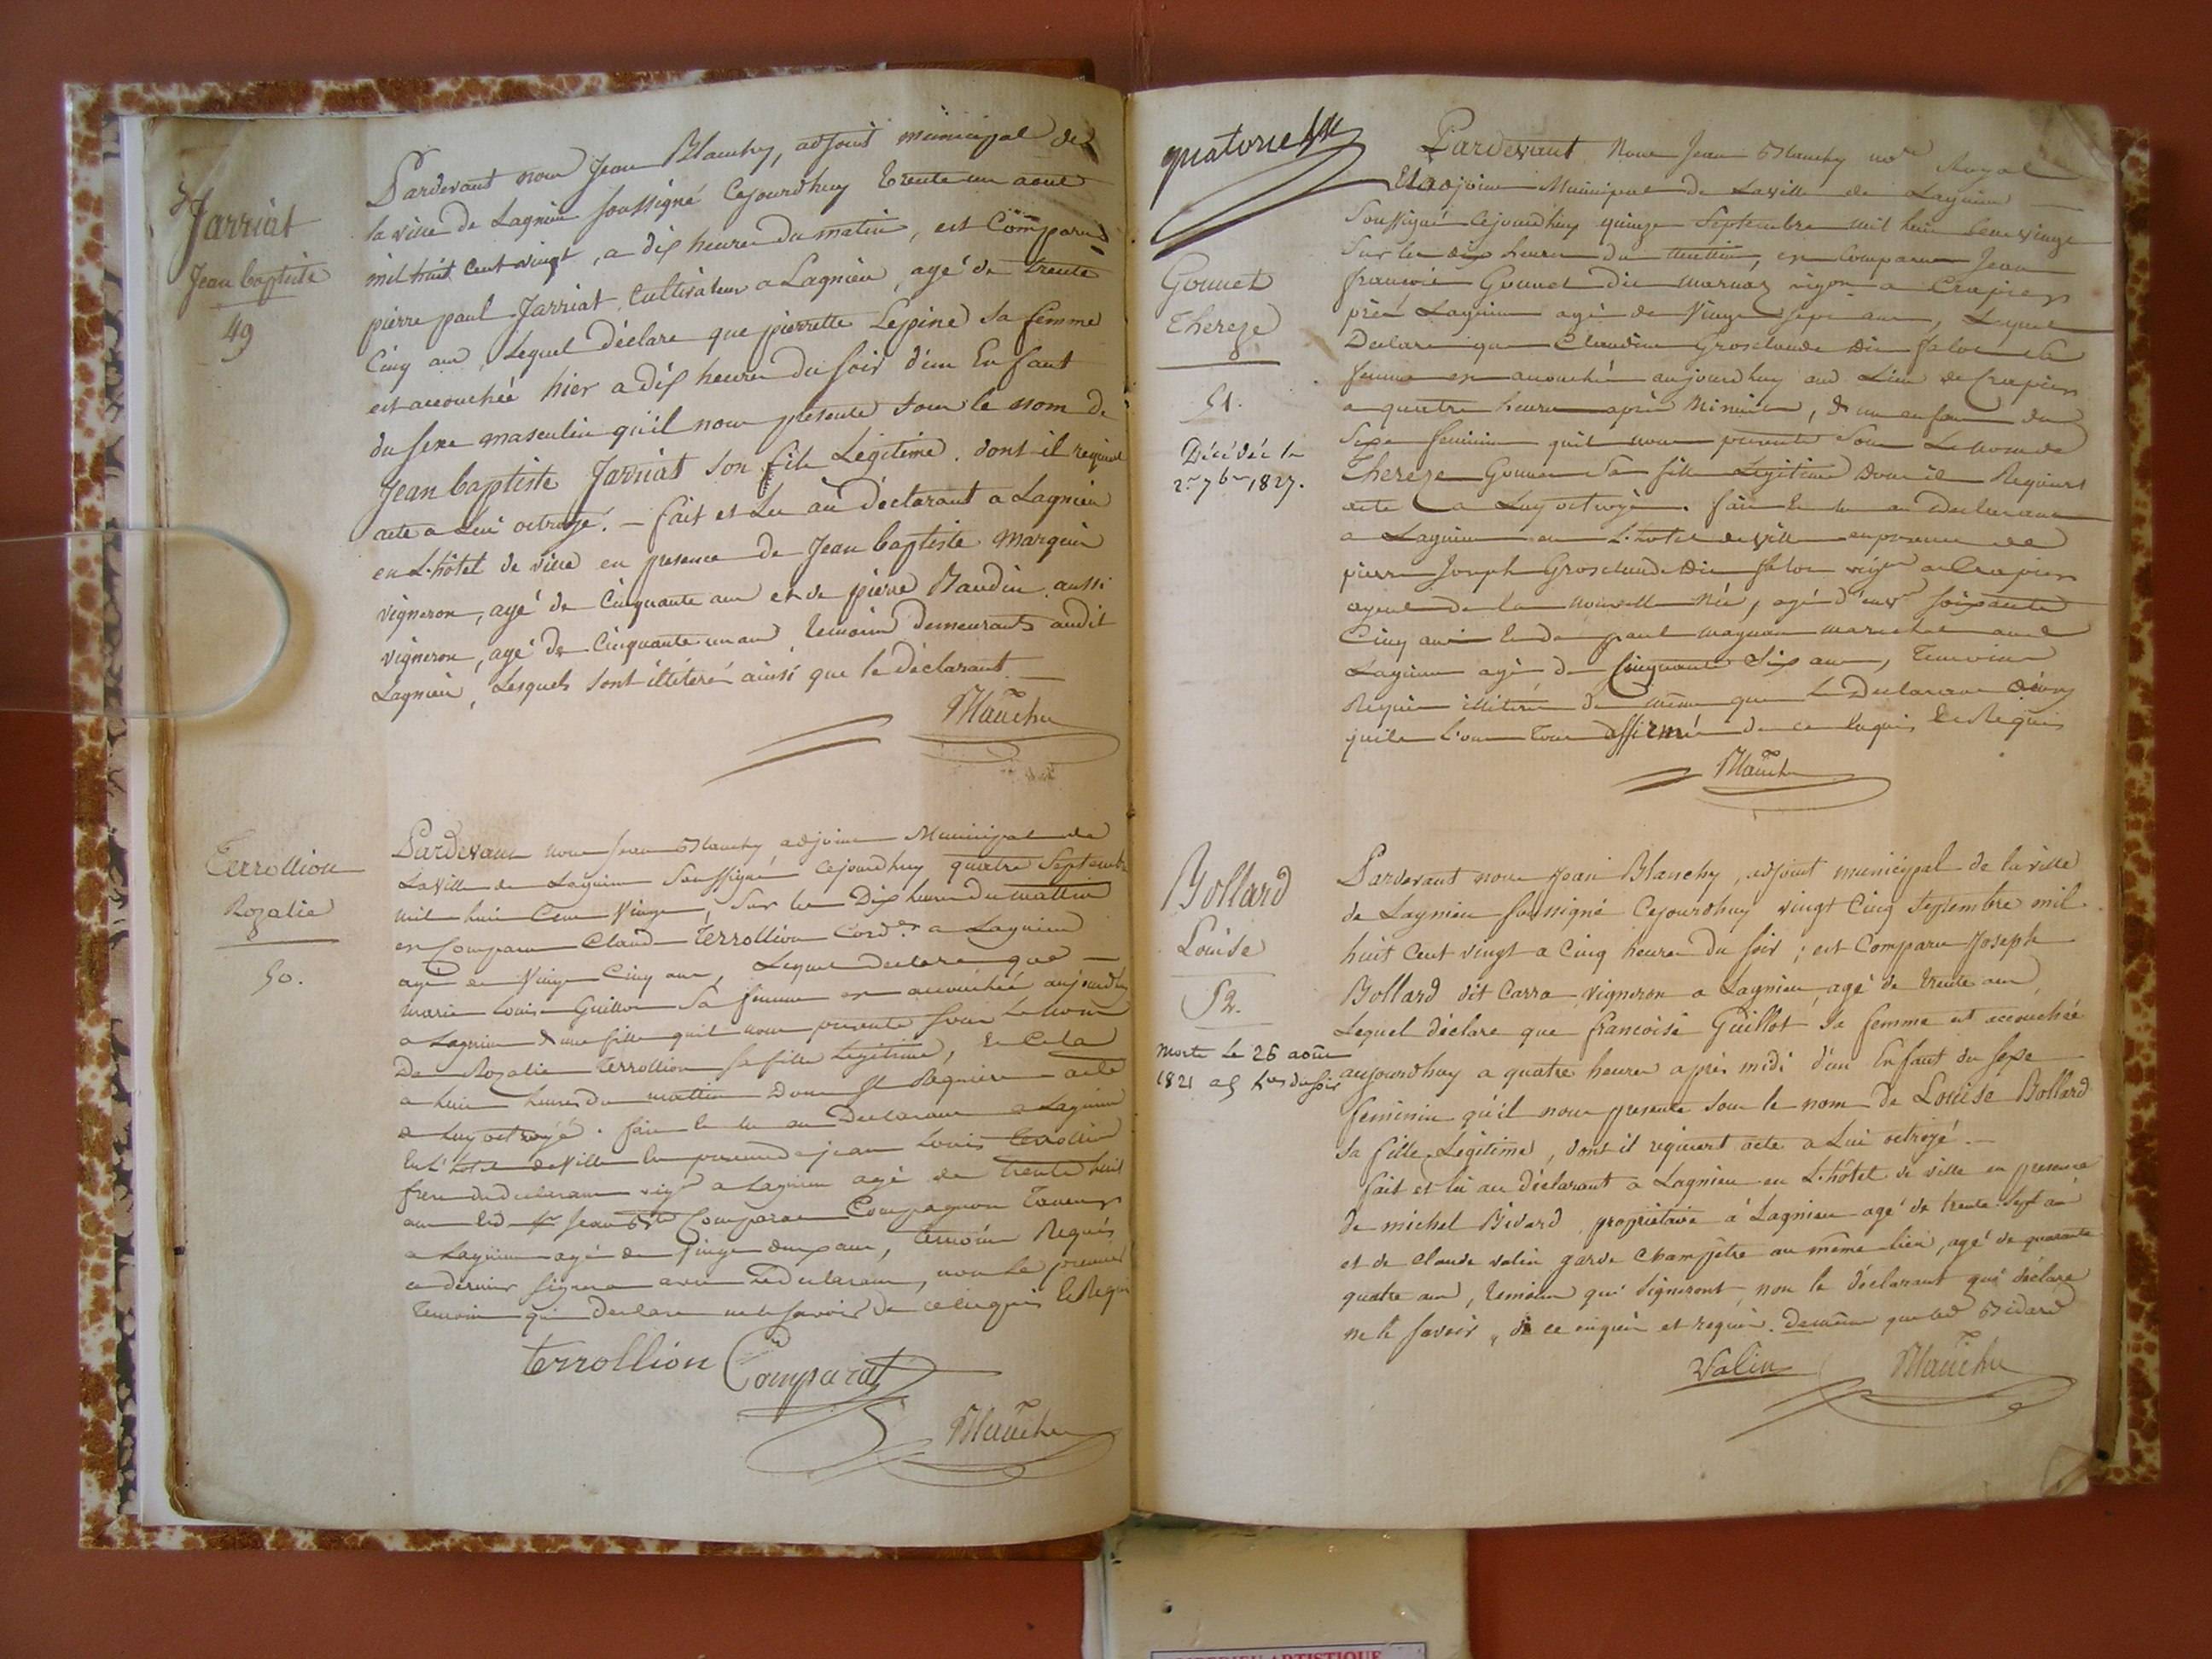 Jarriat
Jean baptiste
49
Pardevant nous Jean Blanchy, adjoint municipal de
la ville de Lagnieu soussigné Cejourdhuy trente un aout
mil huit Cent vingt, a dix heures du matin, est Comparu
pierre paul Jarriat, Cultivateur a Lagnieu, agé de trente
Cinq ans, Lequel déclare que pierrette Lepine sa femme
est accouchée hier a dix heures du soir d'un Enfant
du sexe masculin qu'il nous presente sous le nom de
Jean baptiste Jarriat son fils Légitime. dont il requiert
acte a Lui octroyé. — fait et Lu au déclarant a Lagnieu
en L'hôtel de ville en presence de Jean baptiste Marquin
vigneron, agé de Cinquante ans et de pierre Baudin aussi
vigneron, agé de Cinquante un ans témoins demeurants audit
Lagnieu, Lesquels sont illétéré ainsi que le déclarant. —
Blanchy
Terrollion
Rozalie
50.
Pardevant nous Jean Blanchy adjoint Municipal de
La Ville de Lagnieu Soussigné Cejourdhuy quatre Septembre
mil huit Cent Vingt, Sur les Dix heures du mattin
est Comparu Claude Terrollion Cordr a Lagnieu
agé de Vingt Cinq ans, Lequel declare que —
Marie Louise Guillon Sa femme est accouchée aujourdhuy
a Lagnieu d'une fille quil nous presente sous Le nom
De Rozalie Terrollion sa fille Legitime, et Cela
a huit heures du mattin Dont Il Requiert acte
a Luy octroyé. fait et lu au Declarant a Lagnieu
En L'hotel de Ville En presence de jean Louis Terrollion
frere du declarant vigr a Lagnieu agé de trente huit
ans Et de Sr Jean Bte Comparat Compagnon Taneur
a Lagnieu agé de Vingt deux ans, temoins Requis
ce dernier Signera avec Le declarant, non Le premier
temoin qui Declare ne le Savoir De ce Enquis Et Requis
terrollion Comparat
Blanchy
quatorze
Gounet
Thereze
51.
Décédée le
2 7bre 1827.
Pardevant Nous Jean Blanchy nore Royal
Et adjoint Municipal de La ville de Lagnieu —
Soussigné Cejourdhuy quinze Septembre mil huit Cent vingt
Sur les dix heures du mattin, est Comparu Jean
francois Gounet dit marnaz vigon a Crapieu
prés Lagnieu agé de Vingt sept ans, Lequel
Declare que Claudine Grosclaude dit falot Sa
femme est accouchée aujourdhuy aud Lieu de Crapieu
a quatre heures aprés Minuit, d'un enfant du
Sexe feminin quil nous presente Sous Le nom de
Thereze Gounet Sa fille Legitime Dont il Requiert
acte a Luy octroyé. fait Et lu au Declarant
a Lagnieu en L'hotel de Ville en presence de
pierre Joseph Grosclaude dit falot vigr a Crapieu
ayeul de la nouvelle Née, agé d'envr soixante
Cinq ans et de paul magnan marechal aud
Lagnieu agé de Cinquante Six ans, Temoins
Requis illitéré de même que Le Declarant
quils L'ont Tous affirmé de ce Enquis Et Requis
Blanchy
Bollard
Louise
52.
Morte Le 26 août
1821 a 5 hres du soir
Pardevant nous Jean Blanchy, adjoint municipal de la ville
de Lagnieu soussigné Cejourdhuy vingt Cinq Septembre mil
huit Cent vingt a Cinq heures du soir, est Comparu Joseph
Bollard dit Carra vigneron a Lagnieu, agé de trente ans
Lequel déclare que francoise Guillot sa femme est accouchée
aujourdhuy a quatre heures après midi d'un Enfant du sexe
feminin qu'il nous presente sous le nom de Louise Bollard
sa fille Légitime, dont il requiert acte a Lui octroyé. —
fait et lu au déclarant a Lagnieu en L'hôtel de ville en presence
de michel Bidard, propriétaire à Lagnieu agé de trente sept ans
et de claude valin garde Champêtre au même lieu, agé de quarante
quatre ans, témoins qui signeront, non le déclarant qui déclare
ne le savoir, de ce enquis et requis. de même que led Bidard
Valin Blanchy